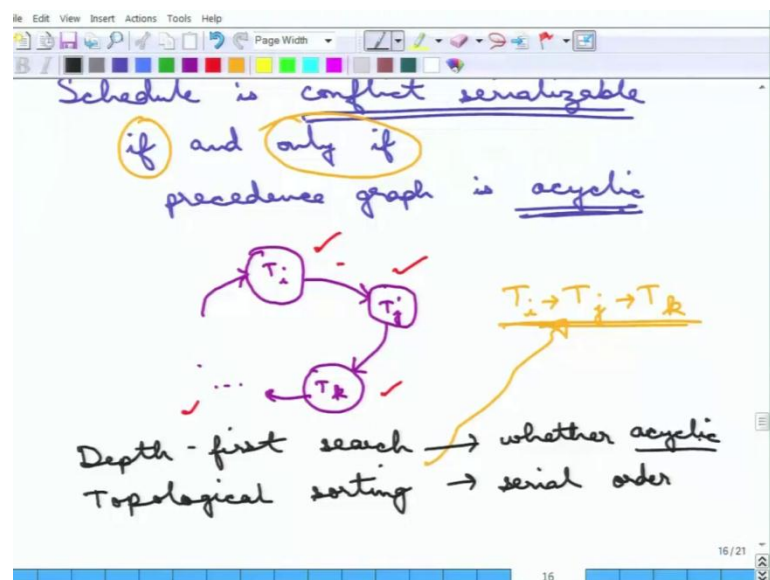 ile Edit View Insert Actions Tools Help
Page Width
B I
Schedule is conflict serializable
if and only if
precedence graph is acyclic
Ti
Tj
Ti → Tj → Tk
Tk
...
Depth-first search → whether acyclic
Topological sorting → serial order
16/21
16